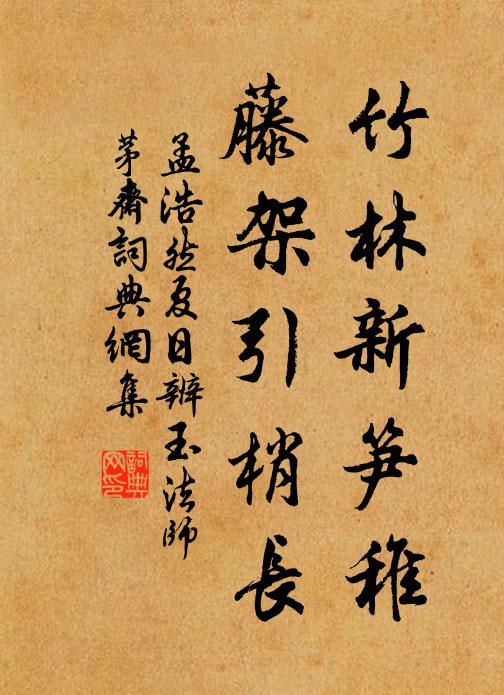 竹林新笋稚
藤架引梢長
孟浩然夏日辨玉法師
茅齋詞典網集
詞典网印